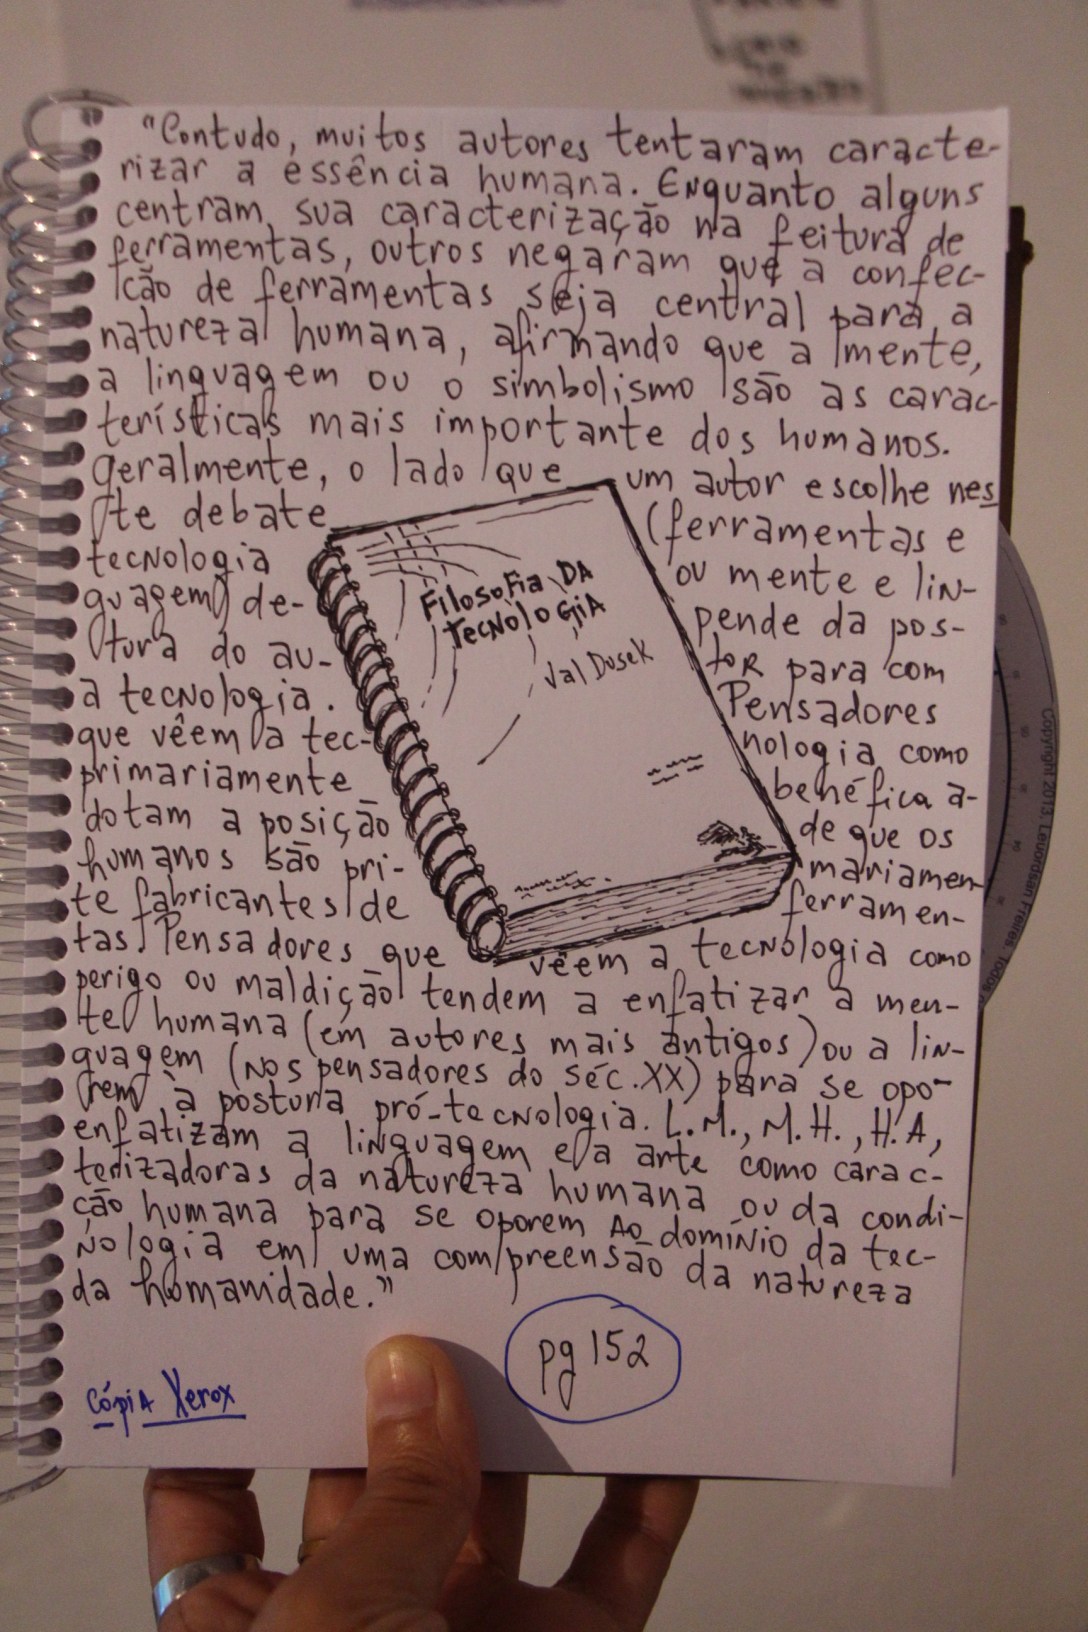 "Contudo, muitos autores tentaram caracte-
rizar a essência humana. Enquanto alguns
centram sua caracterização na feitura de
ferramentas, outros negaram que a confec-
ção de ferramentas seja central para a
natureza humana, afirmando que a mente,
a linguagem ou o simbolismo são as carac-
terísticas mais importante dos humanos.
geralmente, o lado que um autor escolhe nes
te debate (ferramentas e
tecnologia ou mente e lin-
guagem) de- pende da pos-
tura do au- tor para com
a tecnologia. Pensadores
que vêem a tec- nologia como
primariamente benéfica a-
dotam a posição de que os
humanos são pri- mariamen
te fabricantes de ferramen-
tas. Pensadores que vêem a tecnologia como
perigo ou maldição tendem a enfatizar a men-
te humana (em autores mais antigos) ou a lin-
guagem (nos pensadores do séc. XX) para se opo-
rem à postura pró-tecnologia. L.M., M.H., H.A,
enfatizam a linguagem e a arte como carac-
terizadoras da natureza humana ou da condi-
ção humana para se oporem ao domínio da tec-
nologia em uma compreensão da natureza
da humanidade."
Filosofia DA
Tecnologia
Val Dusek
pg 152
cópia Xerox
Copyright 2013. Leuordsan Freires. Todos